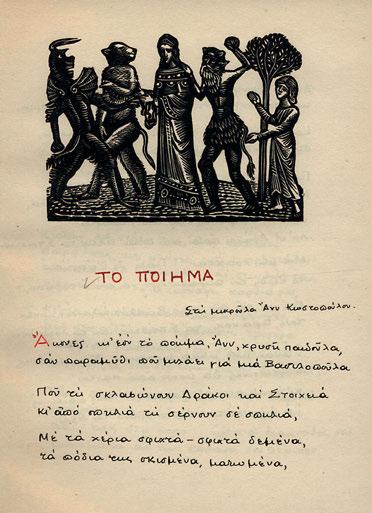 ΤΟ ΠΟΙΗΜΑ
Στὴ μικρούλα Ἄνν Κωστοπούλου.
Ἄκουσε κι' ἐσὺ τὸ ποίημα, Ἄνν, χρυσὴ παιδούλα,
σὰν παραμύθι ποὺ μιλάει γιὰ μιὰ Βασιλοπούλα
Ποὺ τὴ σκλαβώνουν Δράκοι καὶ Στοιχειά
κι' ἀπὸ σπηλιὰ τὴ σέρνουν σὲ σπηλιά,
Μὲ τὰ χέρια σφιχτὰ–σφιχτὰ δεμένα,
τὰ πόδια της σκισμένα, ματωμένα,